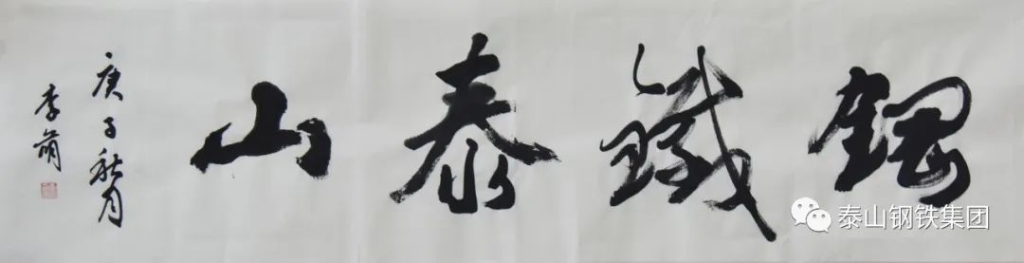 鋼鐵泰山
庚子秋月
李萌
泰山钢铁集团